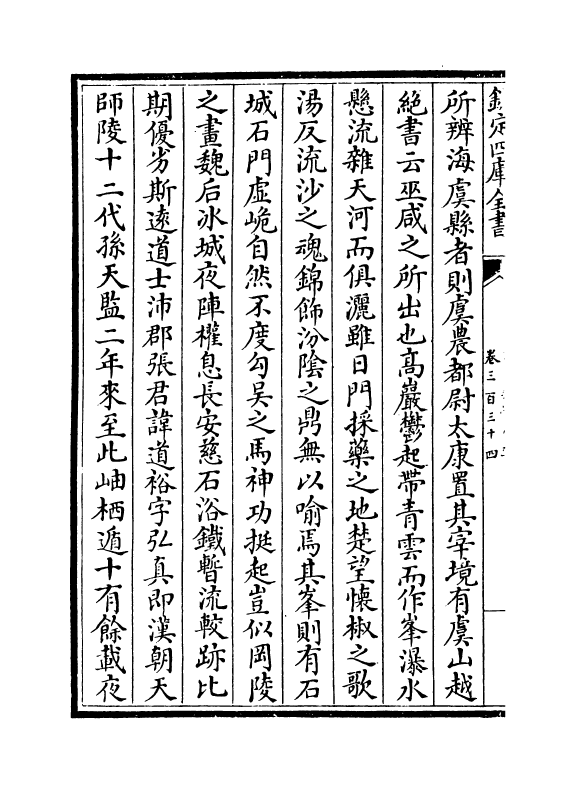 欽定四庫全書
卷三百三十四
所辨海虞縣者則虞農都尉太康置其宰境有虞山越
絶書云巫咸之所出也高巖鬱起帶青雲而作峯瀑水
懸流雜天河而俱灑雖日門採藥之地楚望懐椒之歌
湯反流沙之魂錦飾汾陰之鼎無以喻焉其峯則有石
城石門虚峗自然不度勾吴之馬神功挺起豈似岡陵
之畫魏后冰城夜陣權息長安慈石浴鐵暫流較跡比
期優劣斯逺道士沛郡張君諱道裕字弘真即漢朝天
師陵十二代孫天監二年來至此岫栖遁十有餘載夜